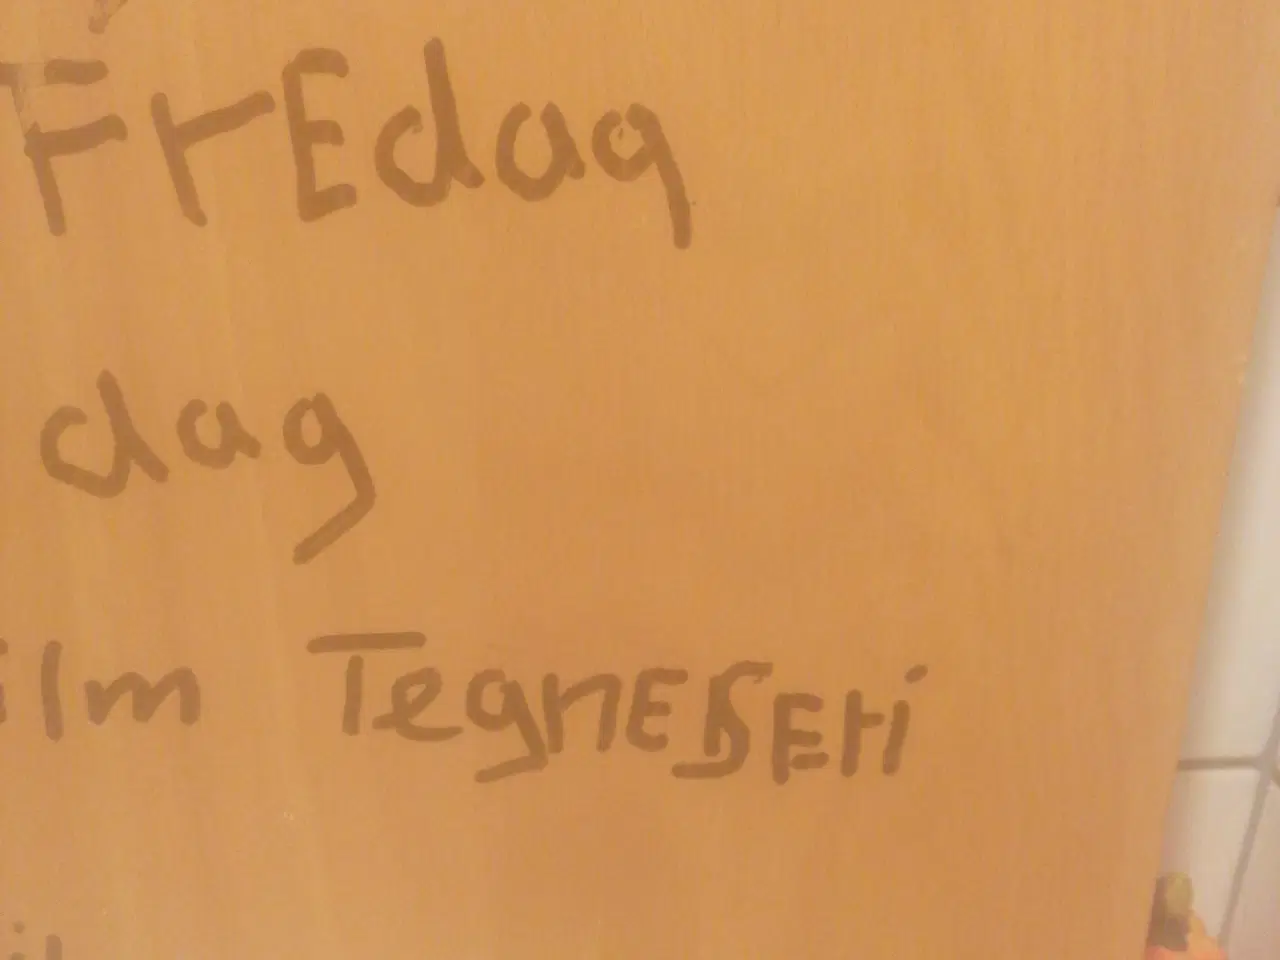 FrEdag
dag
ilm TegnESEri
il